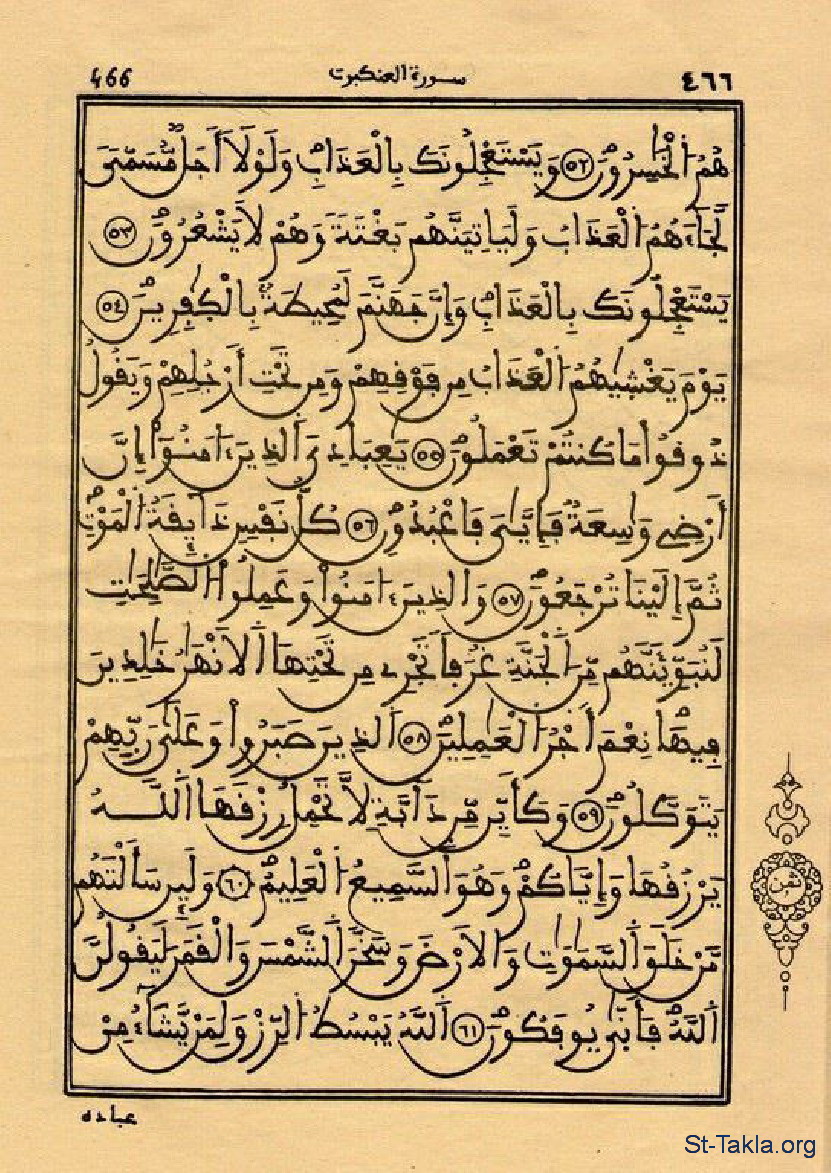 466 سورة العنكبوت ٤٦٦
هُمُ الْخَٰسِرُونَ ٥٢ وَيَسْتَعْجِلُونَكَ بِالْعَذَابِ وَلَوْلَا أَجَلٌ مُّسَمًّى
لَّجَآءَهُمُ الْعَذَابُ وَلَيَاتِيَنَّهُم بَغْتَةً وَهُمْ لَا يَشْعُرُونَ ٥٣
يَسْتَعْجِلُونَكَ بِالْعَذَابِ وَإِنَّ جَهَنَّمَ لَمُحِيطَةٌ بِالْكٰفِرِينَ ٥٤
يَوْمَ يَغْشٰيهُمُ الْعَذَابُ مِن فَوْقِهِمْ وَمِن تَحْتِ أَرْجُلِهِمْ وَيَقُولُ
ذُوقُوا مَا كُنتُمْ تَعْمَلُونَ ٥٥ يَٰعِبَادِيَ الَّذِينَ ءَامَنُوا إِنَّ
أَرْضِي وَٰسِعَةٌ فَإِيَّٰيَ فَاعْبُدُونِ ٥٦ كُلُّ نَفْسٍ ذَآئِقَةُ الْمَوْتِ
ثُمَّ إِلَيْنَا تُرْجَعُونَ ٥٧ وَالَّذِينَ ءَامَنُوا وَعَمِلُوا الصَّٰلِحَٰتِ
لَنُبَوِّئَنَّهُم مِّنَ الْجَنَّةِ غُرَفاً تَجْرِي مِن تَحْتِهَا الَانْهَٰرُ خَٰلِدِينَ
فِيهَا نِعْمَ أَجْرُ الْعَٰمِلِينَ ٥٨ الَّذِينَ صَبَرُوا وَعَلَىٰ رَبِّهِمْ
يَتَوَكَّلُونَ ٥٩ وَكَأَيِّن مِّن دَآبَّةٍ لَّا تَحْمِلُ رِزْقَهَا اللَّهُ
يَرْزُقُهَا وَإِيَّاكُمْ وَهُوَ السَّمِيعُ الْعَلِيمُ ٦٠ وَلَئِن سَأَلْتَهُم
مَّنْ خَلَقَ السَّمَٰوَٰتِ وَالَارْضَ وَسَخَّرَ الشَّمْسَ وَالْقَمَرَ لَيَقُولُنَّ
اللَّهُ فَأَنّٰى يُوفَكُونَ ٦١ اللَّهُ يَبْسُطُ الرِّزْقَ لِمَن يَّشَآءُ مِنْ
عباده
ثمن
St-Takla.org